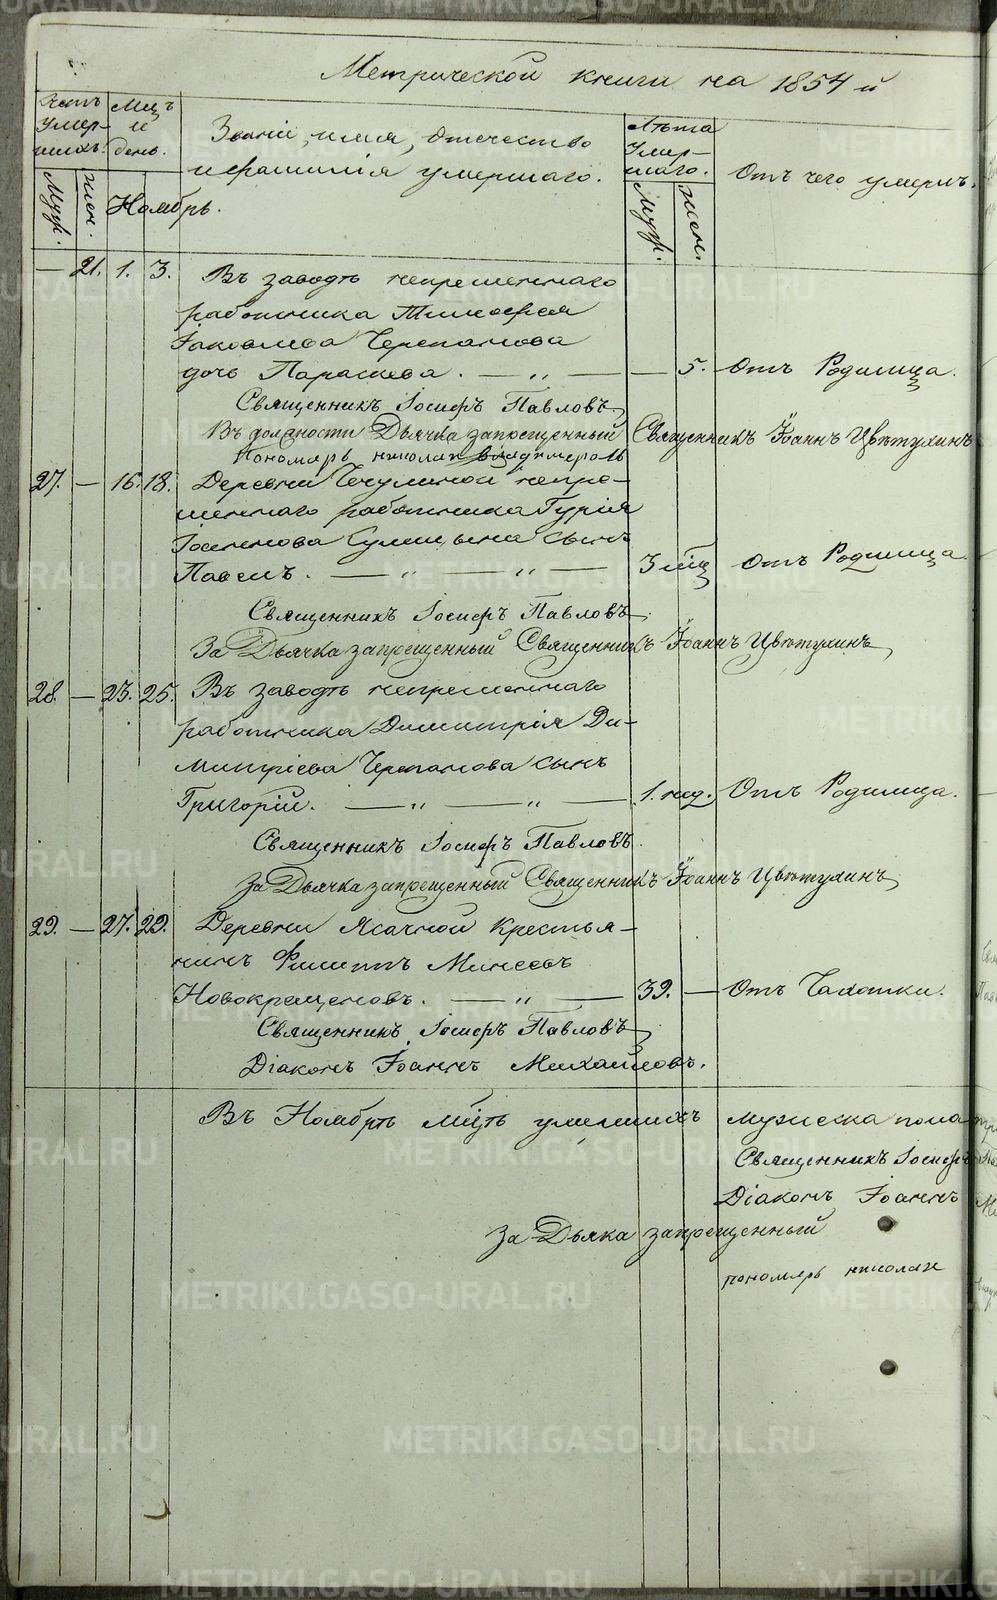 Метрической книги на 1854 й
Счетъ умер-шихъ.
Мцъ и день.
Званіе, имя, отечество
и фамилія умершаго.
Лѣта умер-шаго.
Отъ чего умеръ.
Муж.
Жен.
Ноябрь.
Муж.
Жен.
— 21. 1. 3. Въ заводѣ непременнаго
работника Тимофея
Іаковлева Черепанова
дочь Параскева. — „ — — 5. Отъ Родимца.
Священникъ Іосифъ Павловъ
Въ должности Дьячка запрещенный Священникъ Іоаннъ Цвѣтухинъ
Пономарь николай
27. — 16. 18. Деревни непре-
меннаго работника Гурія
сынъ
Павелъ. — „ — „ — 3 мц Отъ Родимца
Священникъ Іосифъ Павловъ
За Дьячка запрещенный Священникъ Іоаннъ Цвѣтухинъ
28. — 23. 25. Въ заводѣ непременнаго
работника Димитрія Ди-
митріева Черепанова сынъ
Григорій. — „ — „ — 1. нед. Отъ Родимца.
Священникъ Іосифъ Павловъ.
За Дьячка запрещенный Священникъ Іоаннъ Цвѣтухинъ
29. — 27. 29. Деревни Ясачной Крестья-
нинъ Филиппъ Минеевъ
Новокрещеновъ. — „ — 39. — Отъ Чахотки.
Священникъ Іосифъ Павловъ
Діаконъ Іоаннъ Михайловъ.
Въ Ноябрѣ мцѣ умершихъ мужеска пола
Священникъ Іосифъ
Діаконъ Іоаннъ
За Дьяка запрещенный
пономарь николай
METRIKI.GASO-URAL.RU